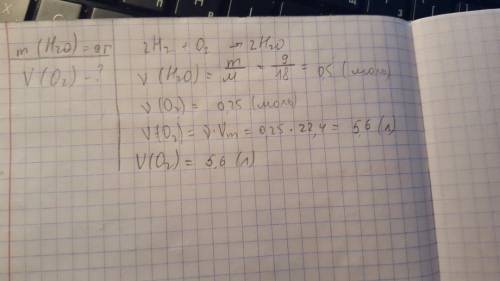 m (H2O) = 9г
V (O2) - ?
2H2 + O2 → 2H2O
ν (H2O) = m/M = 9/18 = 0,5 (моль)
ν (O2) = 0,25 (моль)
V (O2) = ν · Vm = 0,25 · 22,4 = 5,6 (л)
V(O2) = 5,6 (л)